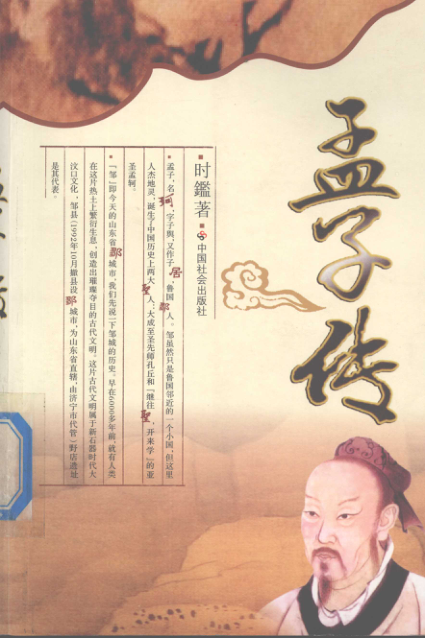 孟子传
时鑑著
中国社会出版社
孟子,名轲,字子舆,又作子居,鲁国邹人。邹虽然只是鲁国邻近的一个小国,但这里
人杰地灵,诞生了中国历史上两大圣人:大成至圣先师孔丘和“继往圣,开来学”的亚
圣孟轲。
“邹”即今天的山东省邹城市,我们先说一下邹城的历史。早在6000多年前,就有人类
在这片热土上繁衍生息,创造出璀璨夺目的古代文明。这片古代文明属于新石器时代大
汶口文化,邹县(1992年10月撤县设邹城市,为山东省直辖,由济宁市代管)野店遗址
是其代表。